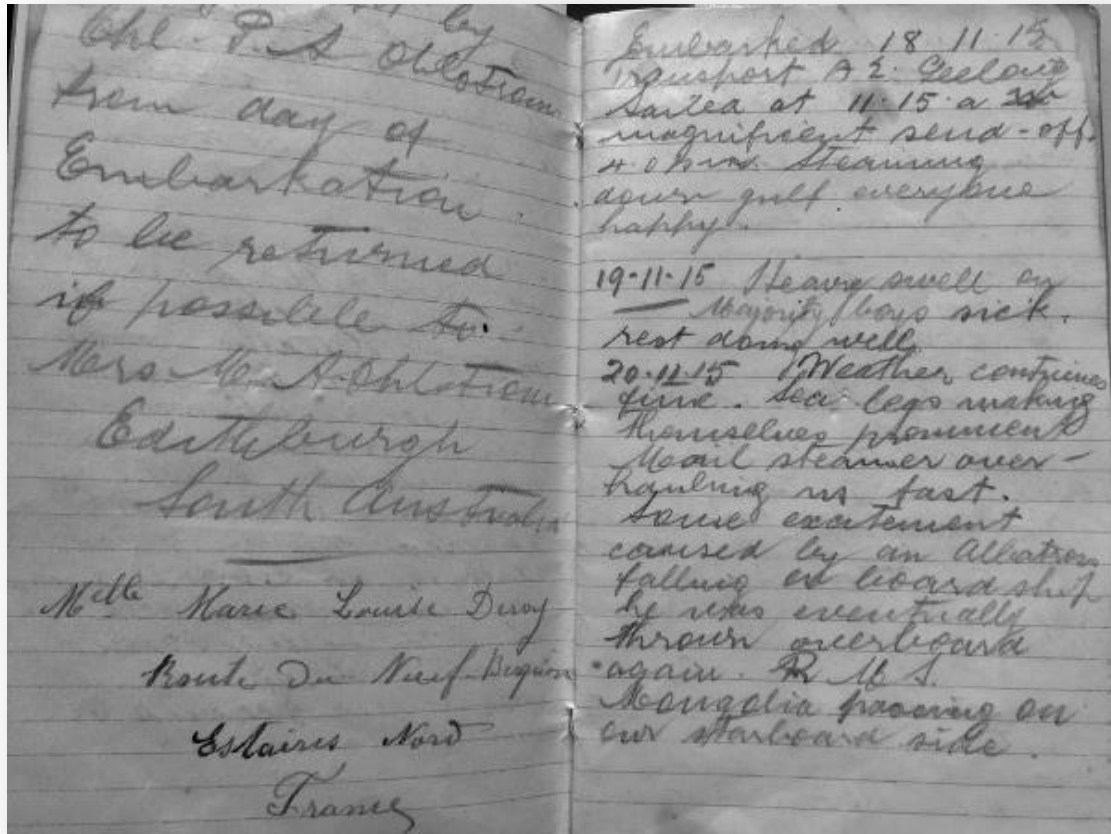 by
Cpl. P. A. Ohlstrom
from day of
Embarkation.
to be returned
if possible to.
Mrs M. A. Ohlstrom
Edithburgh
South Australia
Mlle Marie Louise Deroy
Route Du Neuf-Bequin
Estaires Nord
France
Embarked 18 11.15
Transport A 2. Geelong
Sailed at 11.15. a
magnificent send-off.
4.0 p.m. Steaming
down gulf. everyone
happy.
19.11.15 Heavy swell on
Majority boys sick.
rest doing well
20.11.15 Weather continues
fine. Sea legs making
themselves prominent
Mail steamer over-
hauling us fast.
Some excitement
caused by an Albatross
falling on board ship
he was eventually
thrown overboard
again. R M S.
Mongolia passing on
our starboard side.